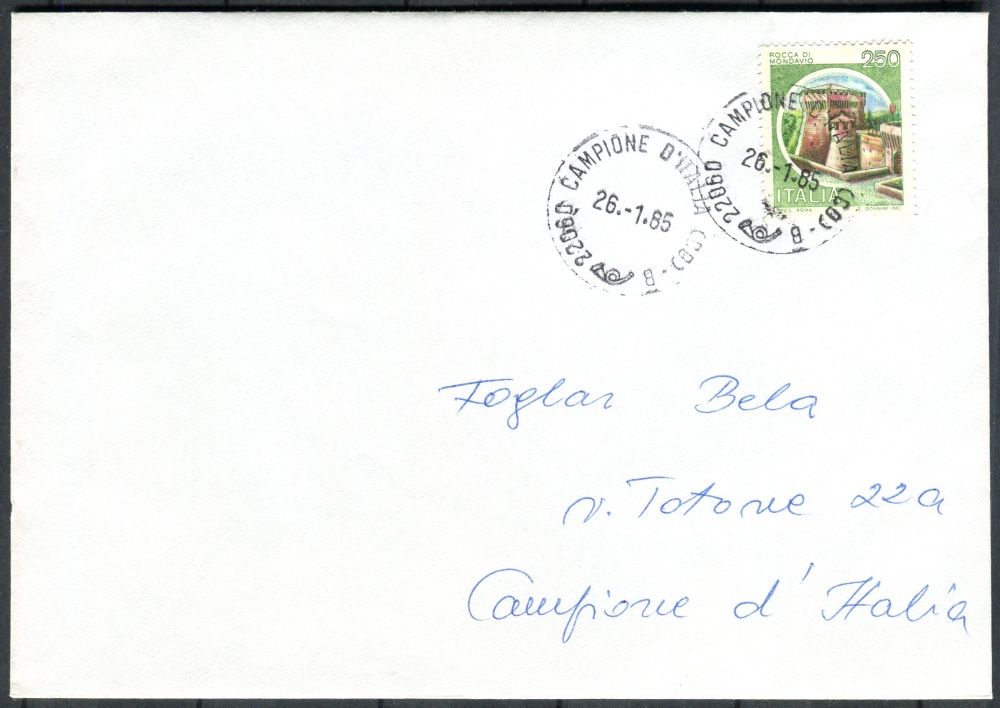 ROCCA DI
MONDAVIO
250
ITALIA
22060 CAMPIONE D'ITALIA (CO) - B
26.-1.85
22060 CAMPIONE D'ITALIA (CO) - B
26.-1.85
Foglar Bela
v. Totone 22a
Campione d'Italia